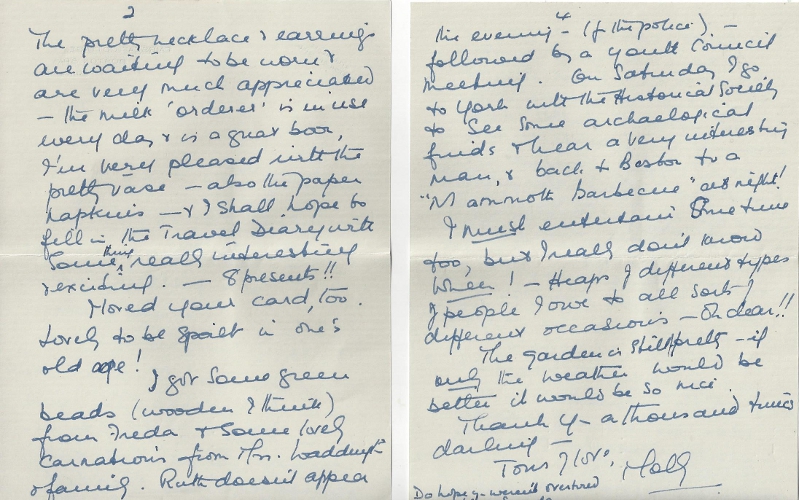 2
The pretty necklace & earrings
are waiting to be worn &
are very much appreciated
– the milk 'orderer' is in use
every day & is a great boon,
I'm very pleased with the
pretty vase – also the paper
napkins – & I shall hope to
fill in the Travel Diary with
something really interesting
& exciting. – 8 presents!!
Loved your card, too.
Lovely to be spoilt in one's
old age!
I got some green
beads (wooden I think)
from Freda & some lovely
carnations from Mrs. Waddington
& family. Ruth doesn't appear
4
the evening – (of the police) –
followed by a Youth Council
meeting. On Saturday I go
to York with the Historical Society
to see some archaelogical
finds & hear a very interesting
man, & back to to a
"Mammoth Barbecue" at night!
I must entertain sometime
too, but I really don't know
when! – Heaps of different types
of people I owe to all sorts of
different occasions – Oh dear!!
The garden is still pretty – if
only the weather would be
better it would be so nice.
Thank y– a thousand times
darling –
Tons of love, Molly
Do hope y– weren't overtired